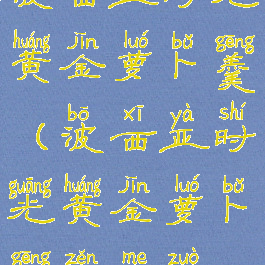 huáng jīn luó bǔ gēng
黄金萝卜羹
bō xī yà shí
（波西亚时
guāng huáng jīn luó bǔ
光黄金萝卜
gēng zěn me zuò